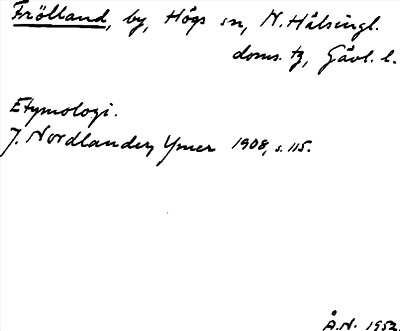 Frölland, by, Högs sn, N. Hälsingl.
doms. tg, Gävl. l.
Etymologi.
J. Nordlander, Ymer 1908, s. 115.
Å.N. 1952.